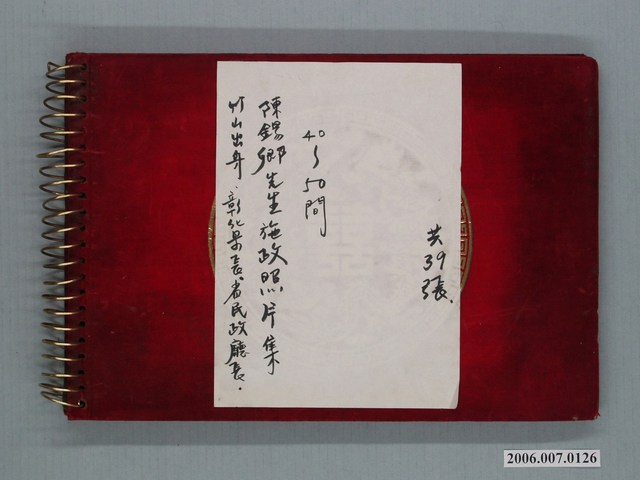 共39張.
40~50間
陳錫卿先生施政照片集
竹山出身.彰化県長、省民政廳長.
2006.007.0126